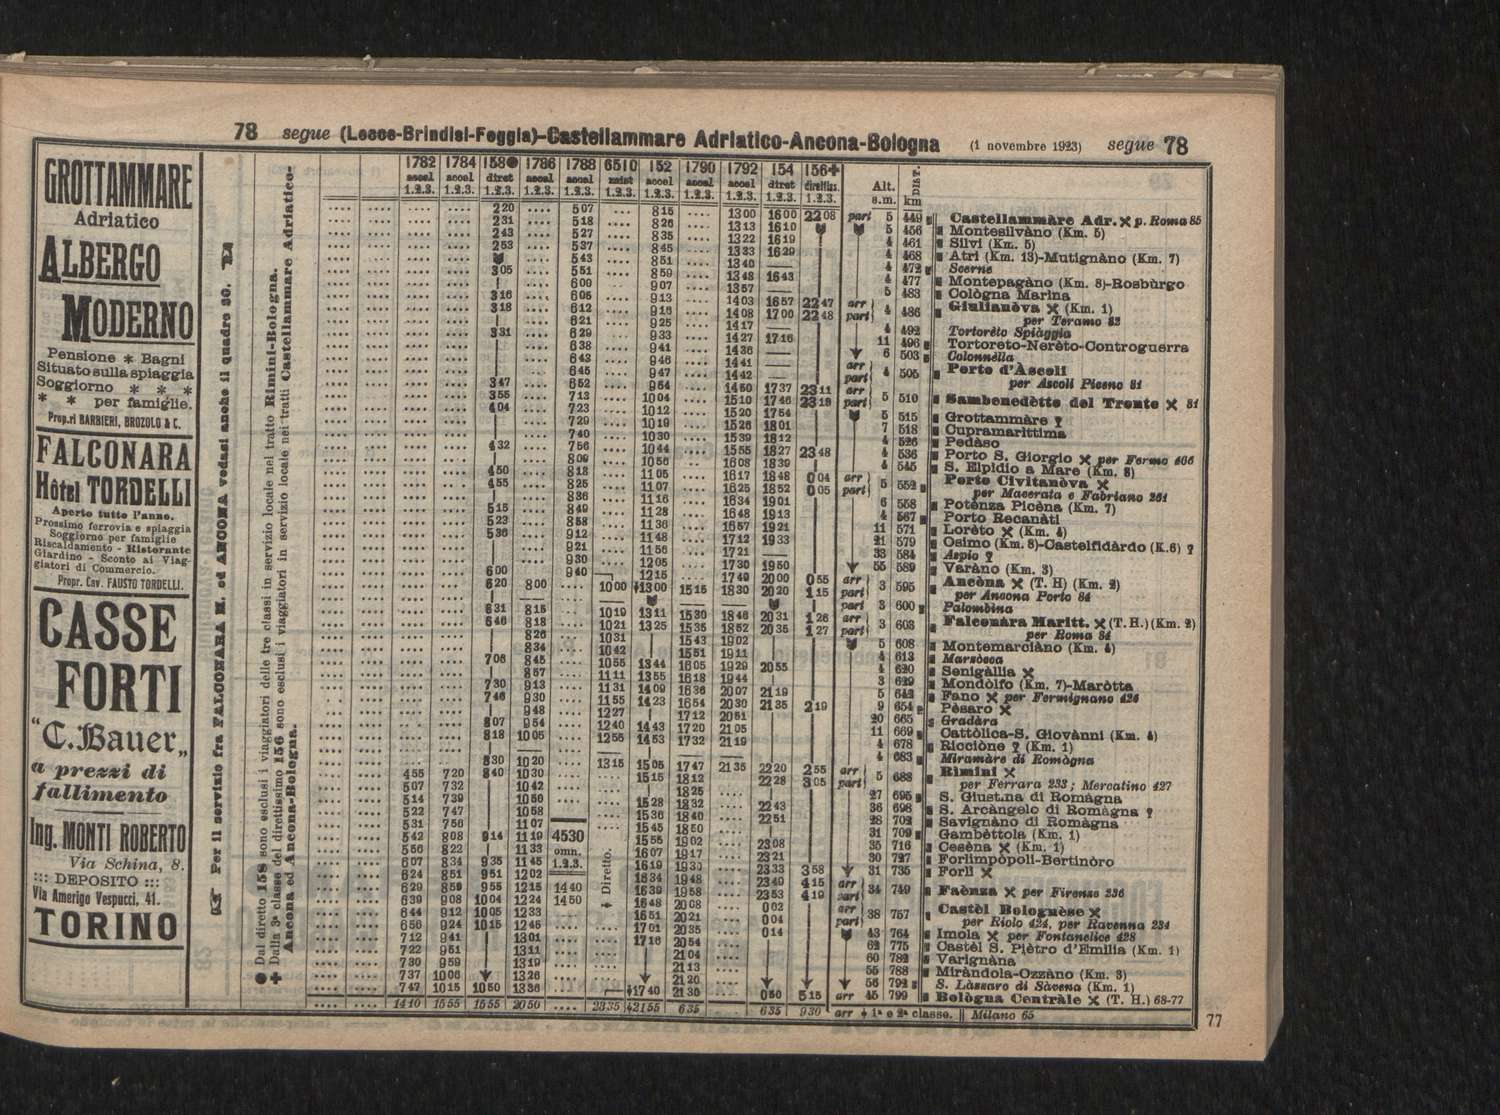 78 segue (Lecce-Brindisi-Foggia)-Castellammare Adriatico-Ancona-Bologna (1 novembre 1923) segue 78
GROTTAMMARE
Adriatico
ALBERGO
MODERNO
Pensione * Bagni
Situato sulla spiaggia
Soggiorno * * *
* * per famiglie.
Prop.ri BARBIERI, BROZOLO & C.
FALCONARA
Hôtel TORDELLI
Aperto tutto l'anno.
Prossimo ferrovia e spiaggia
Soggiorno per famiglie
Riscaldamento - Ristorante
Giardino - Sconto ai Viag-
giatori di Commercio.
Propr. Cav. FAUSTO TORDELLI.
CASSE
FORTI
"C. Bauer„
a prezzi di
fallimento
Ing. MONTI ROBERTO
Via Schina, 8.
::: DEPOSITO :::
Via Amerigo Vespucci, 41.
TORINO
Per il servizio fra FALCONARA M. ed ANCONA vedasi anche il quadro
● Dal diretto 158 sono esclusi i viaggiatori delle tre classi in servizio locale nel tratto Rimini-Bologna.
✚ Dalla 3ª classe del direttissimo 156 sono esclusi i viaggiatori in servizio locale nei tratti Castellammare Adriatico-
Ancona ed Ancona-Bologna.
1782 1784 158● 1786 1788 6510 152 1790 1792 154 156✚
accel accel diret accel accel mist accel accel accel diret direttiss.
1.2.3. 1.2.3. 1.2.3. 1.2.3. 1.2.3. 1.2.3. 1.2.3. 1.2.3. 1.2.3. 1.2.3. 1.2.3.
Alt. s.m. DIST. km
2 20 5 07 8 15 13 00 16 00 22 08 part 5 449 Castellammàre Adr. p. Roma 85
2 31 5 18 8 26 13 13 16 10 5 456 Montesilvàno (Km. 5)
2 43 5 27 8 35 13 22 16 19 4 461 Silvi (Km. 5)
2 53 5 37 8 45 13 33 16 29 4 468 Atri (Km. 13)-Mutignàno (Km. 7)
5 43 8 51 13 40 4 472 Scerne
3 05 5 51 8 59 13 48 16 43 4 477 Montepagàno (Km. 8)-Rosbùrgo
6 00 9 07 13 57 5 483 Cològna Marina
3 16 6 05 9 13 14 03 16 57 22 47 arr
3 18 6 12 9 16 14 08 17 00 22 48 part 4 486 Giulianòva (Km. 1)
per Teramo 82
6 21 9 25 14 17 4 492 Tortorèto Spiàggia
3 31 6 29 9 33 14 27 17 16 11 496 Tortoreto-Nerèto-Controguerra
6 38 9 41 14 36 6 503 Colonnèlla
6 43 9 46 14 41 arr
6 45 9 47 14 42 part 4 505 Porto d'Àscoli
per Ascoli Piceno 81
3 47 6 52 9 54 14 50 17 37 23 11 arr
3 55 7 13 10 04 15 10 17 46 23 19 part 5 510 Sambenedètto del Tronto 81
4 04 7 23 10 12 15 20 17 54 5 515 Grottammàre
7 29 10 19 15 26 18 01 7 518 Cupramarittima
7 40 10 30 15 39 18 12 4 526 Pedàso
4 32 7 56 10 44 15 55 18 27 23 48 4 536 Porto S. Giorgio per Fermo 466
8 09 10 56 16 08 18 39 4 545 S. Elpidio a Mare (Km. 8)
4 50 8 18 11 05 16 17 18 48 0 04 arr
4 55 8 25 11 07 16 25 18 52 0 05 part 5 552 Porto Civitanòva
per Macerata e Fabriano 261
8 36 11 16 16 34 19 01 6 558 Potènza Picèna (Km. 7)
5 15 8 49 11 28 16 48 19 13 4 567 Porto Recanàti
5 23 8 58 11 36 16 57 19 21 11 571 Lorèto (Km. 4)
5 36 9 12 11 48 17 12 19 33 21 579 Osimo (Km. 8)-Castelfidàrdo (K.6)
9 21 11 56 17 21 33 584 Aspio
9 30 12 05 17 30 19 50 55 589 Varàno (Km. 3)
6 00 9 40 12 15 17 40 20 00 0 55 arr
6 20 8 00 10 00 13 00 15 15 18 30 20 20 1 15 part 3 595 Ancòna (T. H) (Km. 2)
per Ancona Porto 84
part 3 600 Palombina
6 31 8 15 10 19 13 11 15 30 18 46 20 31 1 26 arr
6 46 8 18 10 21 13 25 15 35 18 52 20 35 1 27 part 3 603 Falconàra Maritt. (T.H.) (Km. 2)
per Roma 84
8 26 10 31 15 43 19 02 5 608 Montemarciàno (Km. 4)
8 34 10 42 15 51 19 11 4 613 Marzòcca
7 06 8 45 10 55 13 44 16 05 19 29 20 55 4 620 Senigàllia
8 57 11 11 13 55 16 18 19 44 3 629 Mondòlfo (Km. 7)-Maròtta
7 30 9 13 11 31 14 09 16 36 20 07 21 19 5 642 Fano per Fermignano 426
7 46 9 30 11 55 14 23 16 54 20 30 21 35 2 19 9 654 Pèsaro
9 48 12 27 17 12 20 51 20 665 Gradàra
8 07 9 54 12 40 14 43 17 20 21 05 11 669 Cattòlica-S. Giovànni (Km. 4)
8 18 10 05 12 56 14 53 17 32 21 19 4 678 Riccióne (Km. 1)
4 683 Miramàre di Romàgna
8 30 10 20 13 15 15 05 17 47 21 35 22 20 2 55 arr
4 55 7 20 8 40 10 30 15 15 18 12 22 28 3 05 part 5 688 Rimini
per Ferrara 233; Mercatino 427
5 07 7 32 10 42 18 25 27 695 S. Giust.na di Romàgna
5 14 7 39 10 50 15 28 18 32 22 43 36 698 S. Arcàngelo di Romàgna
5 22 7 47 10 58 15 36 18 40 22 51 28 702 Savignàno di Romàgna
5 31 7 56 11 07 15 45 18 50 31 709 Gambèttola (Km. 1)
5 42 8 08 9 14 11 19 15 55 19 02 23 08 35 716 Cesèna (Km. 1)
5 56 8 22 11 33 16 07 19 17 23 21 30 727 Forlimpòpoli-Bertinòro
6 07 8 34 9 35 11 45 16 19 19 30 23 33 3 58 31 735 Forlì
6 24 8 51 9 51 12 02 16 34 19 48 23 49 4 15 arr
6 29 8 59 9 55 12 15 14 40 16 39 19 58 23 53 4 19 part 34 749 Faènza per Firenze 236
6 39 9 08 10 04 12 24 14 50 16 48 20 08 0 02 arr
6 44 9 12 10 05 12 33 16 51 20 21 0 04 part 38 757 Castèl Bolognèse
per Riolo 424, per Ravenna 234
6 56 9 24 10 15 12 45 17 01 20 35 0 14 43 764 Imola per Fontanelice 428
7 12 9 41 13 01 17 16 20 54 62 775 Castèl S. Piètro d'Emilia (Km. 1)
7 22 9 51 13 11 21 04 60 782 Varignàna
7 30 9 59 13 19 21 13 55 788 Miràndola-Ozzàno (Km. 3)
7 37 10 06 13 26 21 20 56 792 S. Làzzaro di Sàvena (Km. 1)
7 47 10 15 10 50 13 36 17 40 21 30 0 50 5 15 arr 45 799 Bològna Centràle (T. H.) 68-77
14 10 15 55 15 55 20 50 23 35 21 55 6 35 6 35 9 30 arr 1ª e 2ª classe. Milano 65
4530
omn.
1.2.3.
Diretto.
77